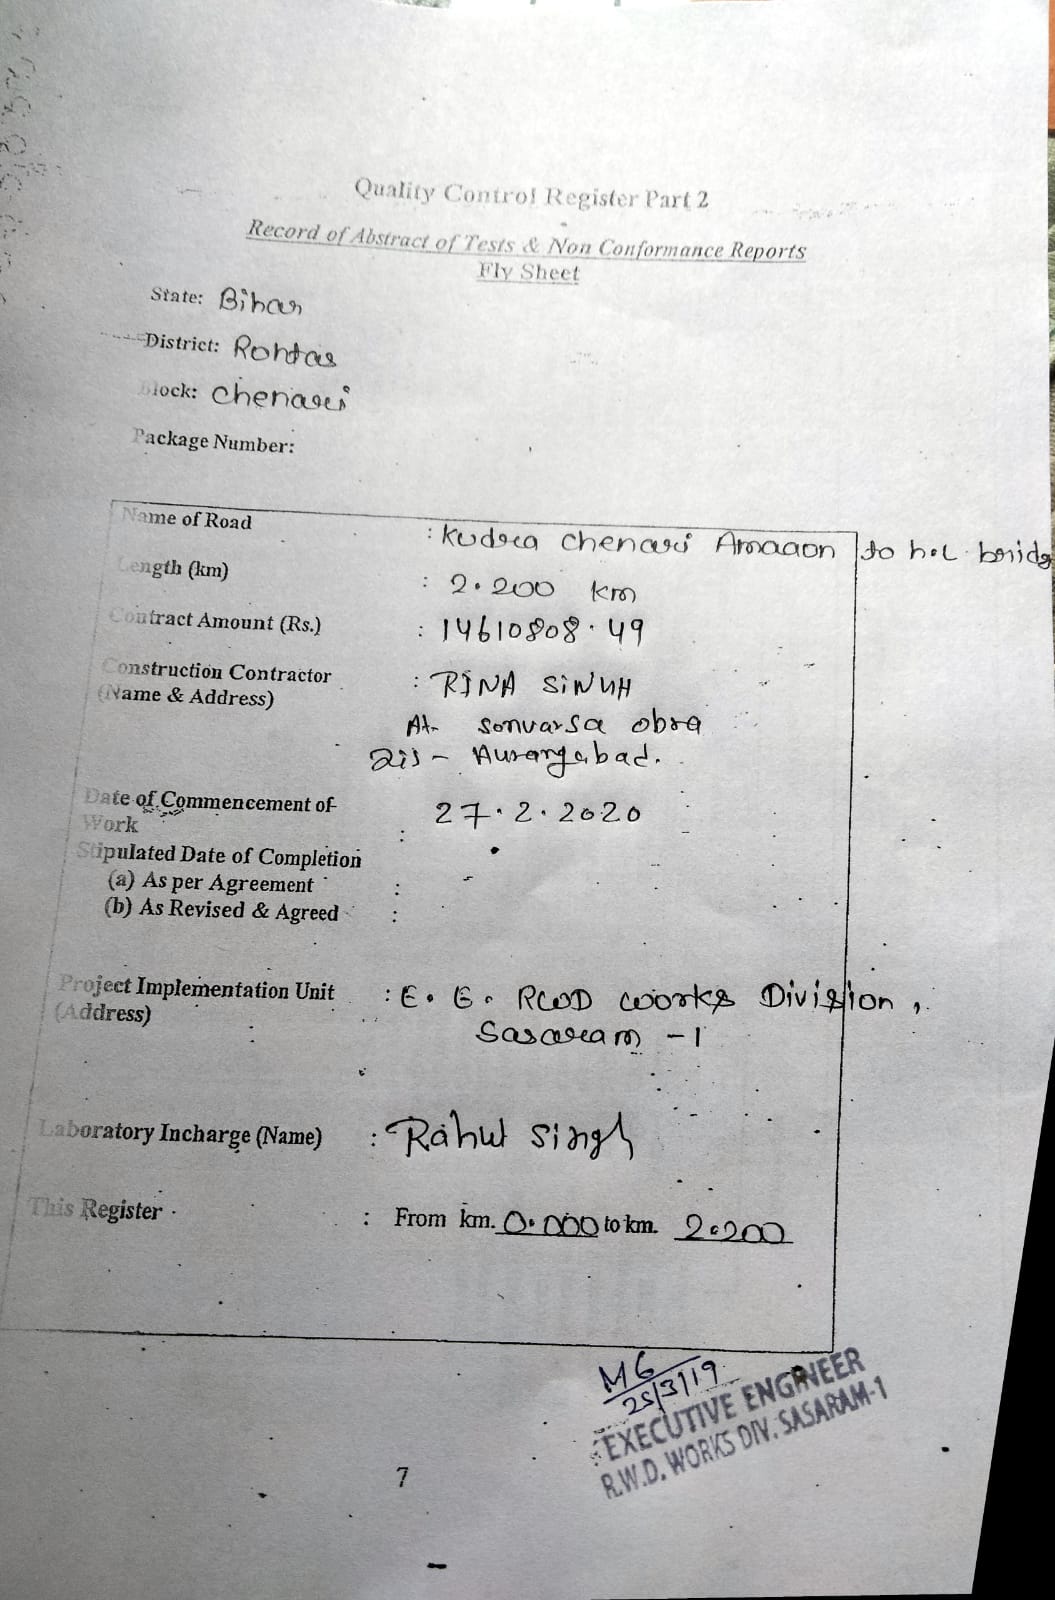 Quality Control Register Part 2
Record of Abstract of Tests & Non Conformance Reports
Fly Sheet
State: Bihar
District: Rohtas
Block: Chenari
Package Number:
Name of Road : Kudra Chenari Amaaon to h.L bridg
Length (km) : 2.200 km
Contract Amount (Rs.) : 14610808.49
Construction Contractor : RINA SINGH
(Name & Address)
At- Sonvarsa obra
Dis - Aurangabad.
Date of Commencement of 27.2.2020
Work :
Stipulated Date of Completion
(a) As per Agreement :
(b) As Revised & Agreed :
Project Implementation Unit : E. E. RWD Works Division,
(Address) Sasaram -1
Laboratory Incharge (Name) : Rahul Singh
This Register : From km. 0.000 to km. 2.200
25/3/19
EXECUTIVE ENGINEER
R.W.D. WORKS DIV. SASARAM-1
7